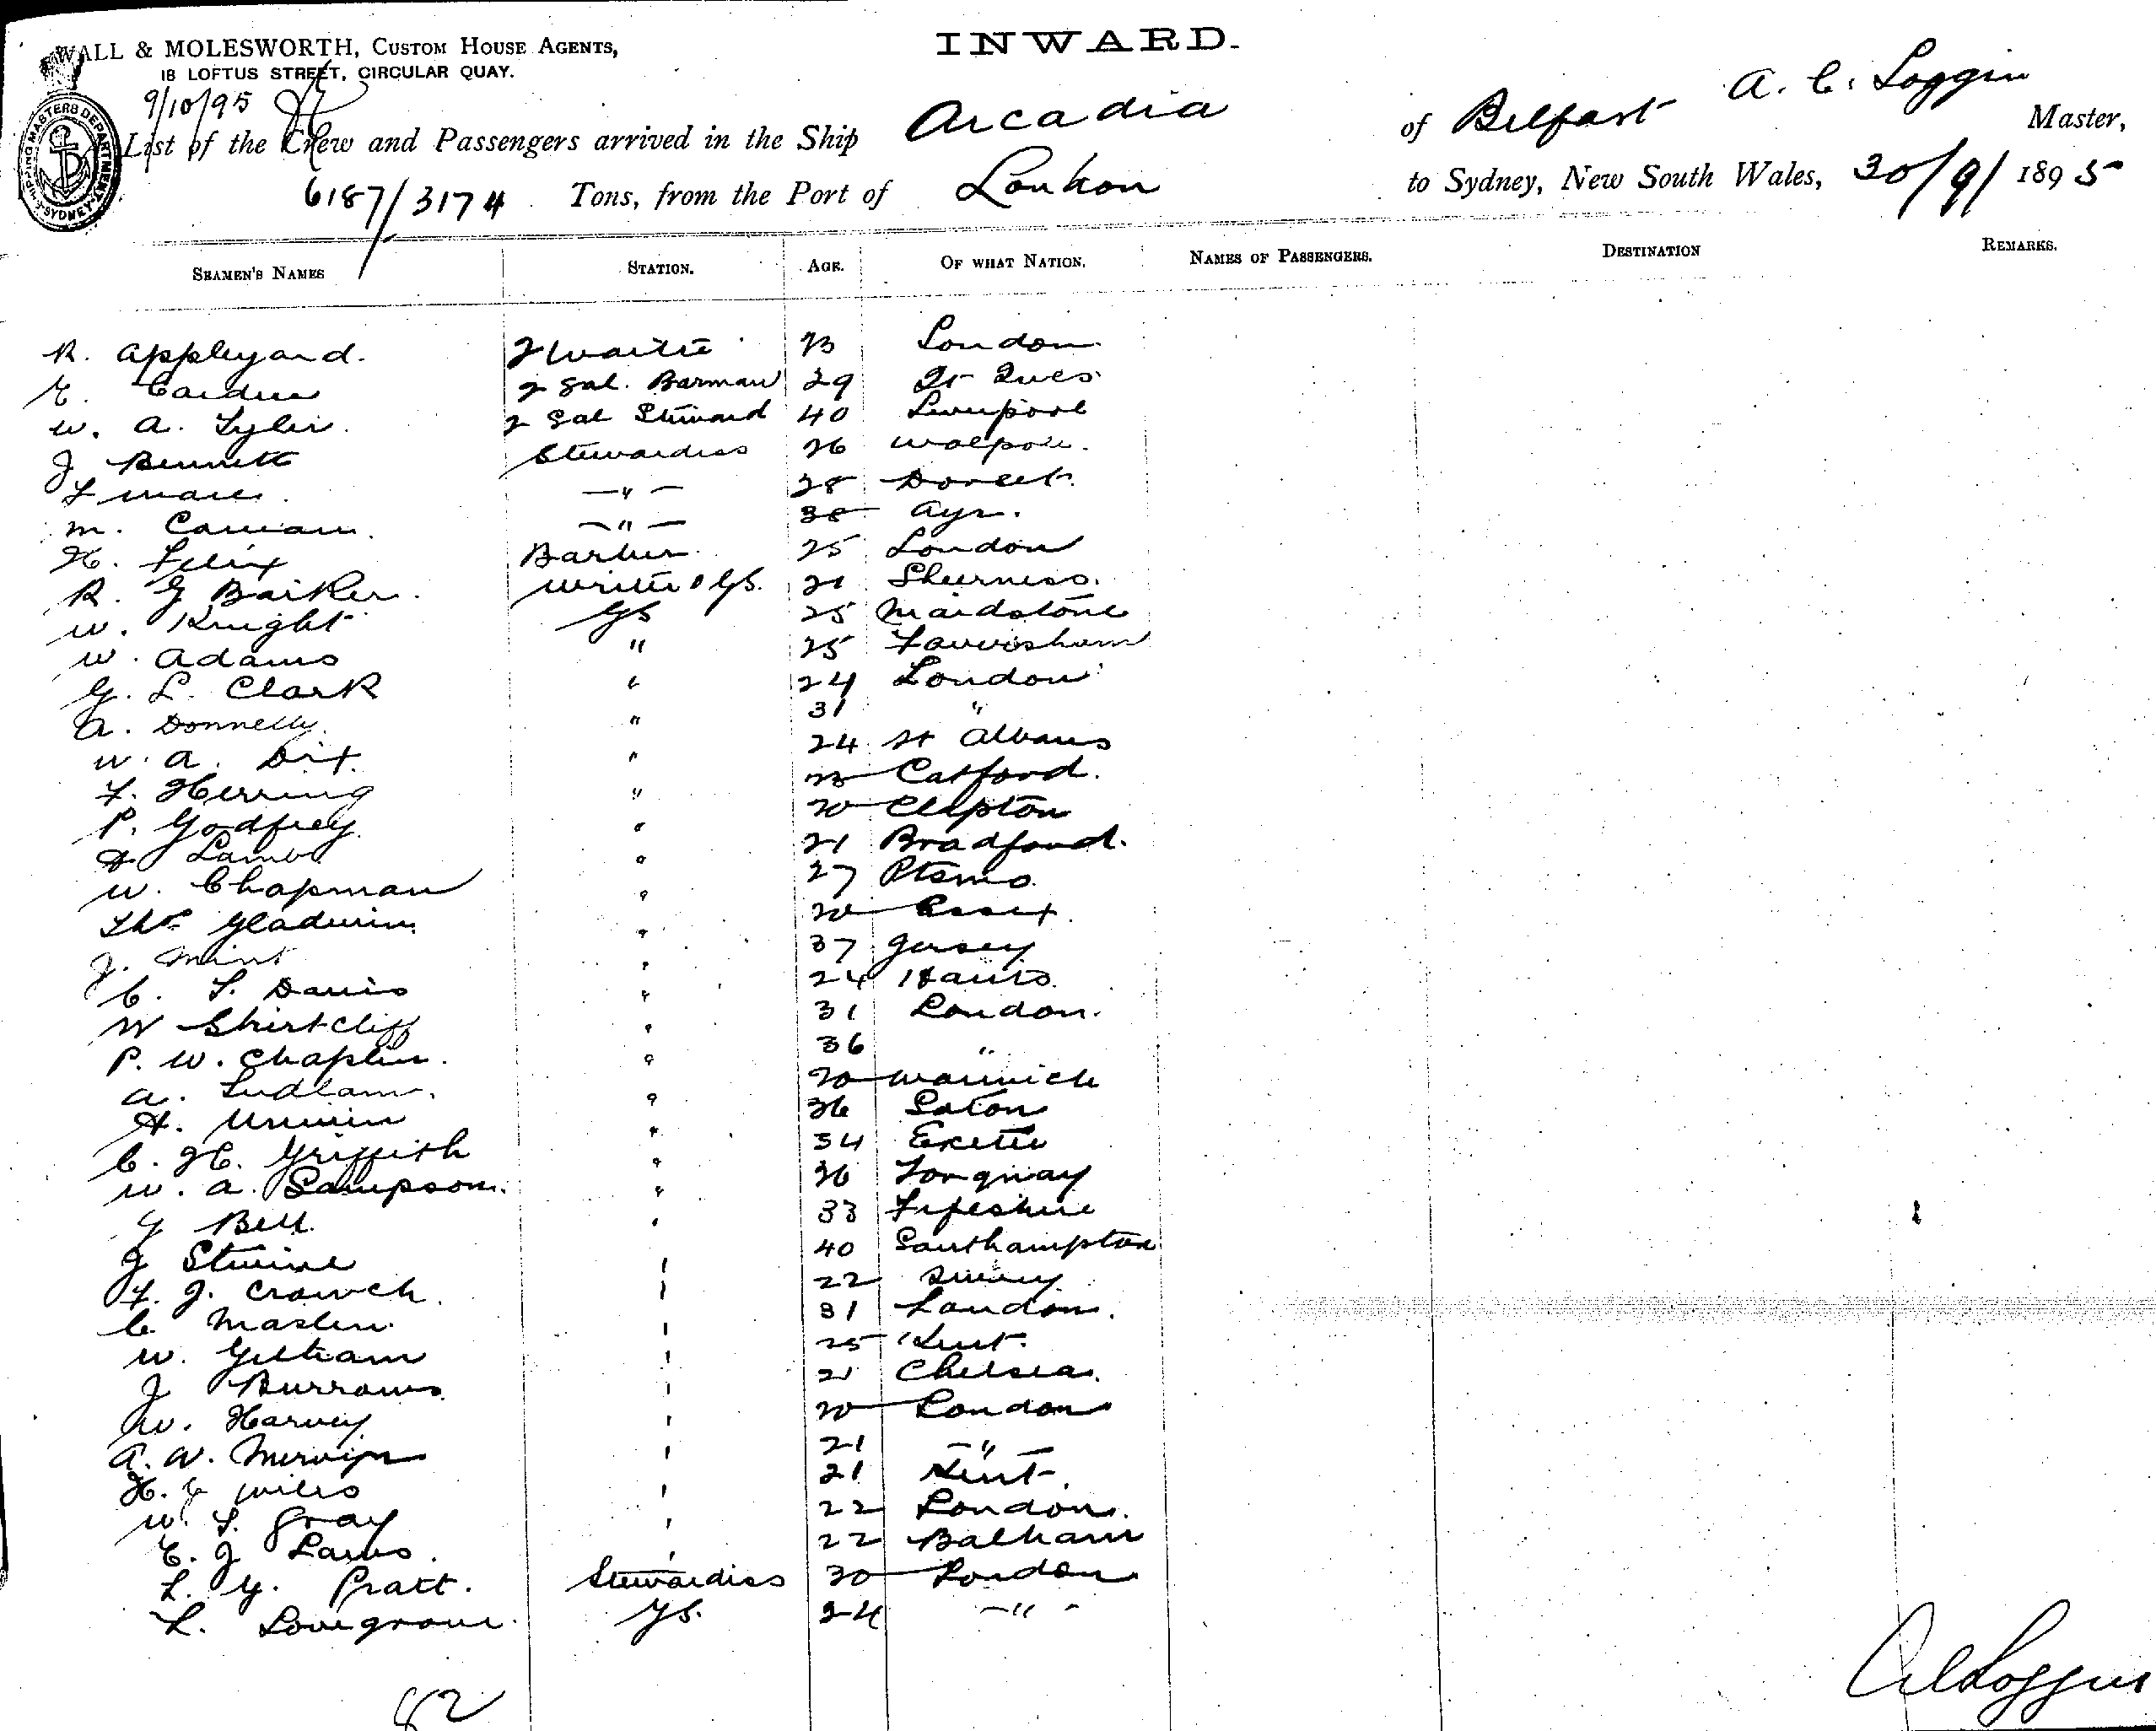 WALL & MOLESWORTH, CUSTOM HOUSE AGENTS,
18 LOFTUS STREET, CIRCULAR QUAY.
INWARD.
9/10/95
SHIPPING MASTERS DEPARTMENT SYDNEY
A. C. Loggin
List of the Crew and Passengers arrived in the Ship Arcadia of Belfast Master,
6187/3174 Tons, from the Port of London to Sydney, New South Wales, 30/9/1895
SEAMEN'S NAMES STATION. AGE. OF WHAT NATION. NAMES OF PASSENGERS. DESTINATION REMARKS.
R. Appleyard. 23 London
2 Sal. Barman 29 St Ives
W. A. Tyler. 2 Sal Steward 40 Liverpool
J Bennett Stewardess 26 Walpole.
28 Dorset.
M. —"— Ayr.
H. Felix Barber 25 London
R. G Barker. Writer & GS. 21 Sheerness.
W. Knight GS 25 Maidstone
W. Adams " 25 Faversham
G. L. Clark " 24 London
A. Donnelly. " 31 "
W. A. Dix. " 24 St Albans
F. Herring " 23 Catford.
P. Godfrey. " 20 Clapton
A Lamb " 21 Bradford.
W. Chapman " 27 Ptsmo.
Thos Gladwin. " 20 Essex.
J. Mint " 37 Jersey
C. F. Davis " 24 Hants.
W Shirtcliff " 31 London.
P. W. Chaplin. " 36 "
A. Ludlam. " 20 Warwick
H. Unwin " 36
C. H. Griffith " 34 Exeter
W. A. Sampson. " 36 Torquay
G Bell. " 33 Fifeshire
J " 40 Southampton
F. J. Crouch. " 22 Surrey
C. Maslen. " 31 London.
W. Geltham " 25 Kent.
J Burrows. " 21 Chelsea.
W. Harvey " 20 London
A. W. " 21 —"—
H. G Miles " 21 Kent.
W. F. Gray " 22 London.
E. J Laws. " 22 Balham
L. G. Pratt. Stewardess 30 London
L. Lovegrove. GS. 24 —"—
82
A C Loggin